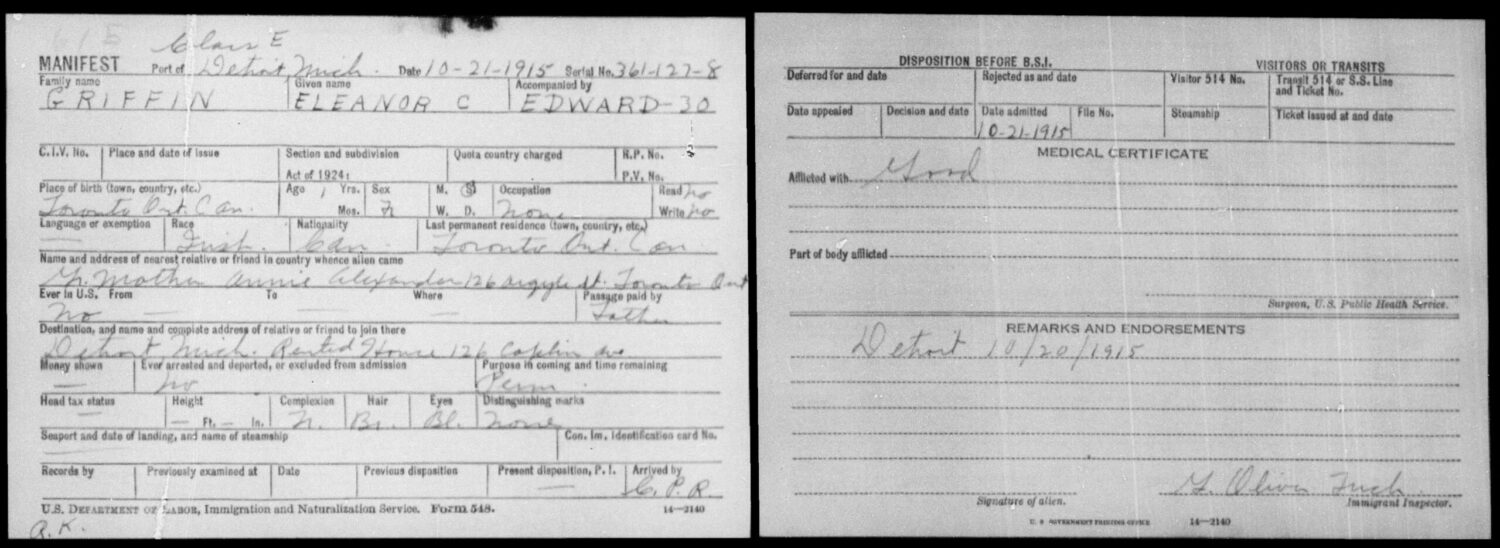 Class E
MANIFEST Port of Detroit, Mich. Date 10-21-1915 Serial No. 361-127-8
Family name Given name Accompanied by
GRIFFIN ELEANOR C EDWARD-30
C.I.V. No. Place and date of issue Section and subdivision Quota country charged R.P. No.
Act of 1924: P.V. No.
Place of birth (town, country, etc.) Age Yrs. Sex M. S Occupation Read no
Toronto Ont. Can. Mos. F W. D. None Write no
Language or exemption Race Nationality Last permanent residence (town, country, etc.)
— Irish. Can. Toronto Ont. Can.
Name and address of nearest relative or friend in country whence alien came
Gr. Mother Annie Alexander 126 Argyle St. Toronto Ont
Ever in U.S. From To Where Passage paid by
No — — — Father
Destination, and name and complete address of relative or friend to join there
Detroit Mich. Rented House 126 Ave
Money shown Ever arrested and deported, or excluded from admission Purpose in coming and time remaining
— No Perm.
Head tax status Height Complexion Hair Eyes Distinguishing marks
— — Ft. — In. Br. Bl. None
Seaport and date of landing, and name of steamship Con. Im. Identification card No.
Records by Previously examined at Date Previous disposition Present disposition, P. I. Arrived by
— C. P. R.
U.S. DEPARTMENT OF LABOR, Immigration and Naturalization Service. Form 548. 14—2140
DISPOSITION BEFORE B.S.I. VISITORS OR TRANSITS
Deferred for and date Rejected as and date Visitor 514 No. Transit 514 or S.S. Line
and Ticket No.
Date appealed Decision and date Date admitted File No. Steamship Ticket issued at and date
10-21-1915
MEDICAL CERTIFICATE
Afflicted with Good
Part of body afflicted
Surgeon, U.S. Public Health Service.
REMARKS AND ENDORSEMENTS
Detroit 10/20/1915
Oliver
Signature of alien. Immigrant Inspector.
U. S GOVERNMENT PRINTING OFFICE 14—2140